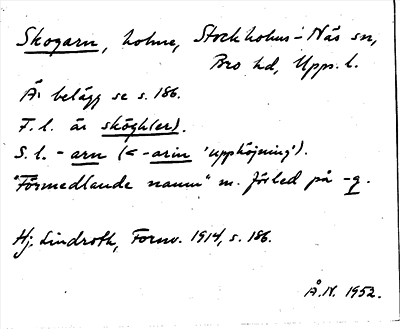 Skogarn, holme, Stockholms-Näs sn,
Bro hd, Upps. l.
Ä. belägg se s. 186.
F. l. är skögh(er).
S. l. - arn (< -arin 'upphöjning').
"Förmedlande namn" m. förled på -g.
Hj. Lindroth, Fornv. 1914, s. 186.
Å.N. 1952.